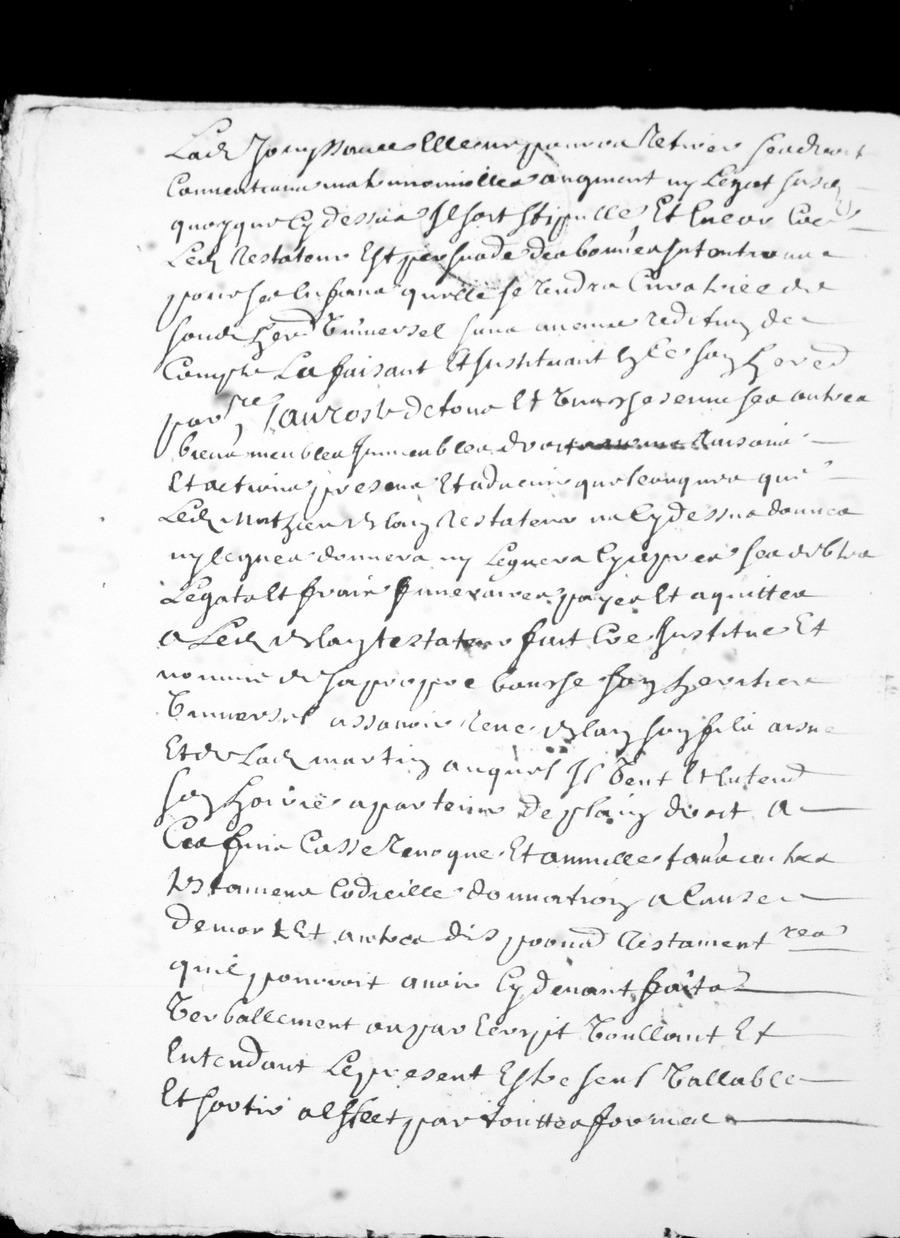 Lad Jouyssance Elle ne pourra Retirer sesdroit
Conventions matrimonielles augment ny Legat susd
quoyque Cy dessus Il soit stipulle Et Encor Ce
Led Testateur Est persuade des bonnes Intentions
pour ses Enfans quelle se rendra Curatrice de
soud hered Universel sans aucune reddition de
Compte La faisant Et Instituant
par De tous Et Uns ses autres
biens meubles Immeubles droits Raisons
Et actions presens Et advenir quelconques que
Led Mathieu Testateur na Cy dessus donnes
ny legues donnera ny Leguera Cy apres ses debtes
Legats Et frais funeraires payes Et aquittes
a Led testateur fait Cree Institue Et
nomme de sa propre bouche son heritier
Universel assavoir Rene son fils aisne
Et de Lad martin auquel Il Veut Et Entend
son hoirie apartenir De plain droit A
Ces fins Casse Revoque Et annulle tous autres
testamens Codicille donnation a Cause
De mort Et autres dispoond Testament res
quil pourroit avoir Cy devant faites
Verballement ou par Escript Voullant Et
Entendant Le present Estre seul Vallable
Et sortir a Effect par touttes formes